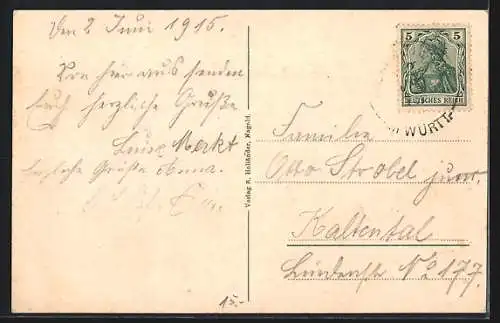 Den 2 Juni 1915.
Von hier aus senden
Euch herzliche Grüße
Luise Merkt
Herzliche Grüße
Verlag v. Holländer, Nagold.
5 5
DEUTSCHES REICH
WÜRTT.
Familie
Otto Strobel junr.
Kaltental
Lindenstr No 177.
15.-